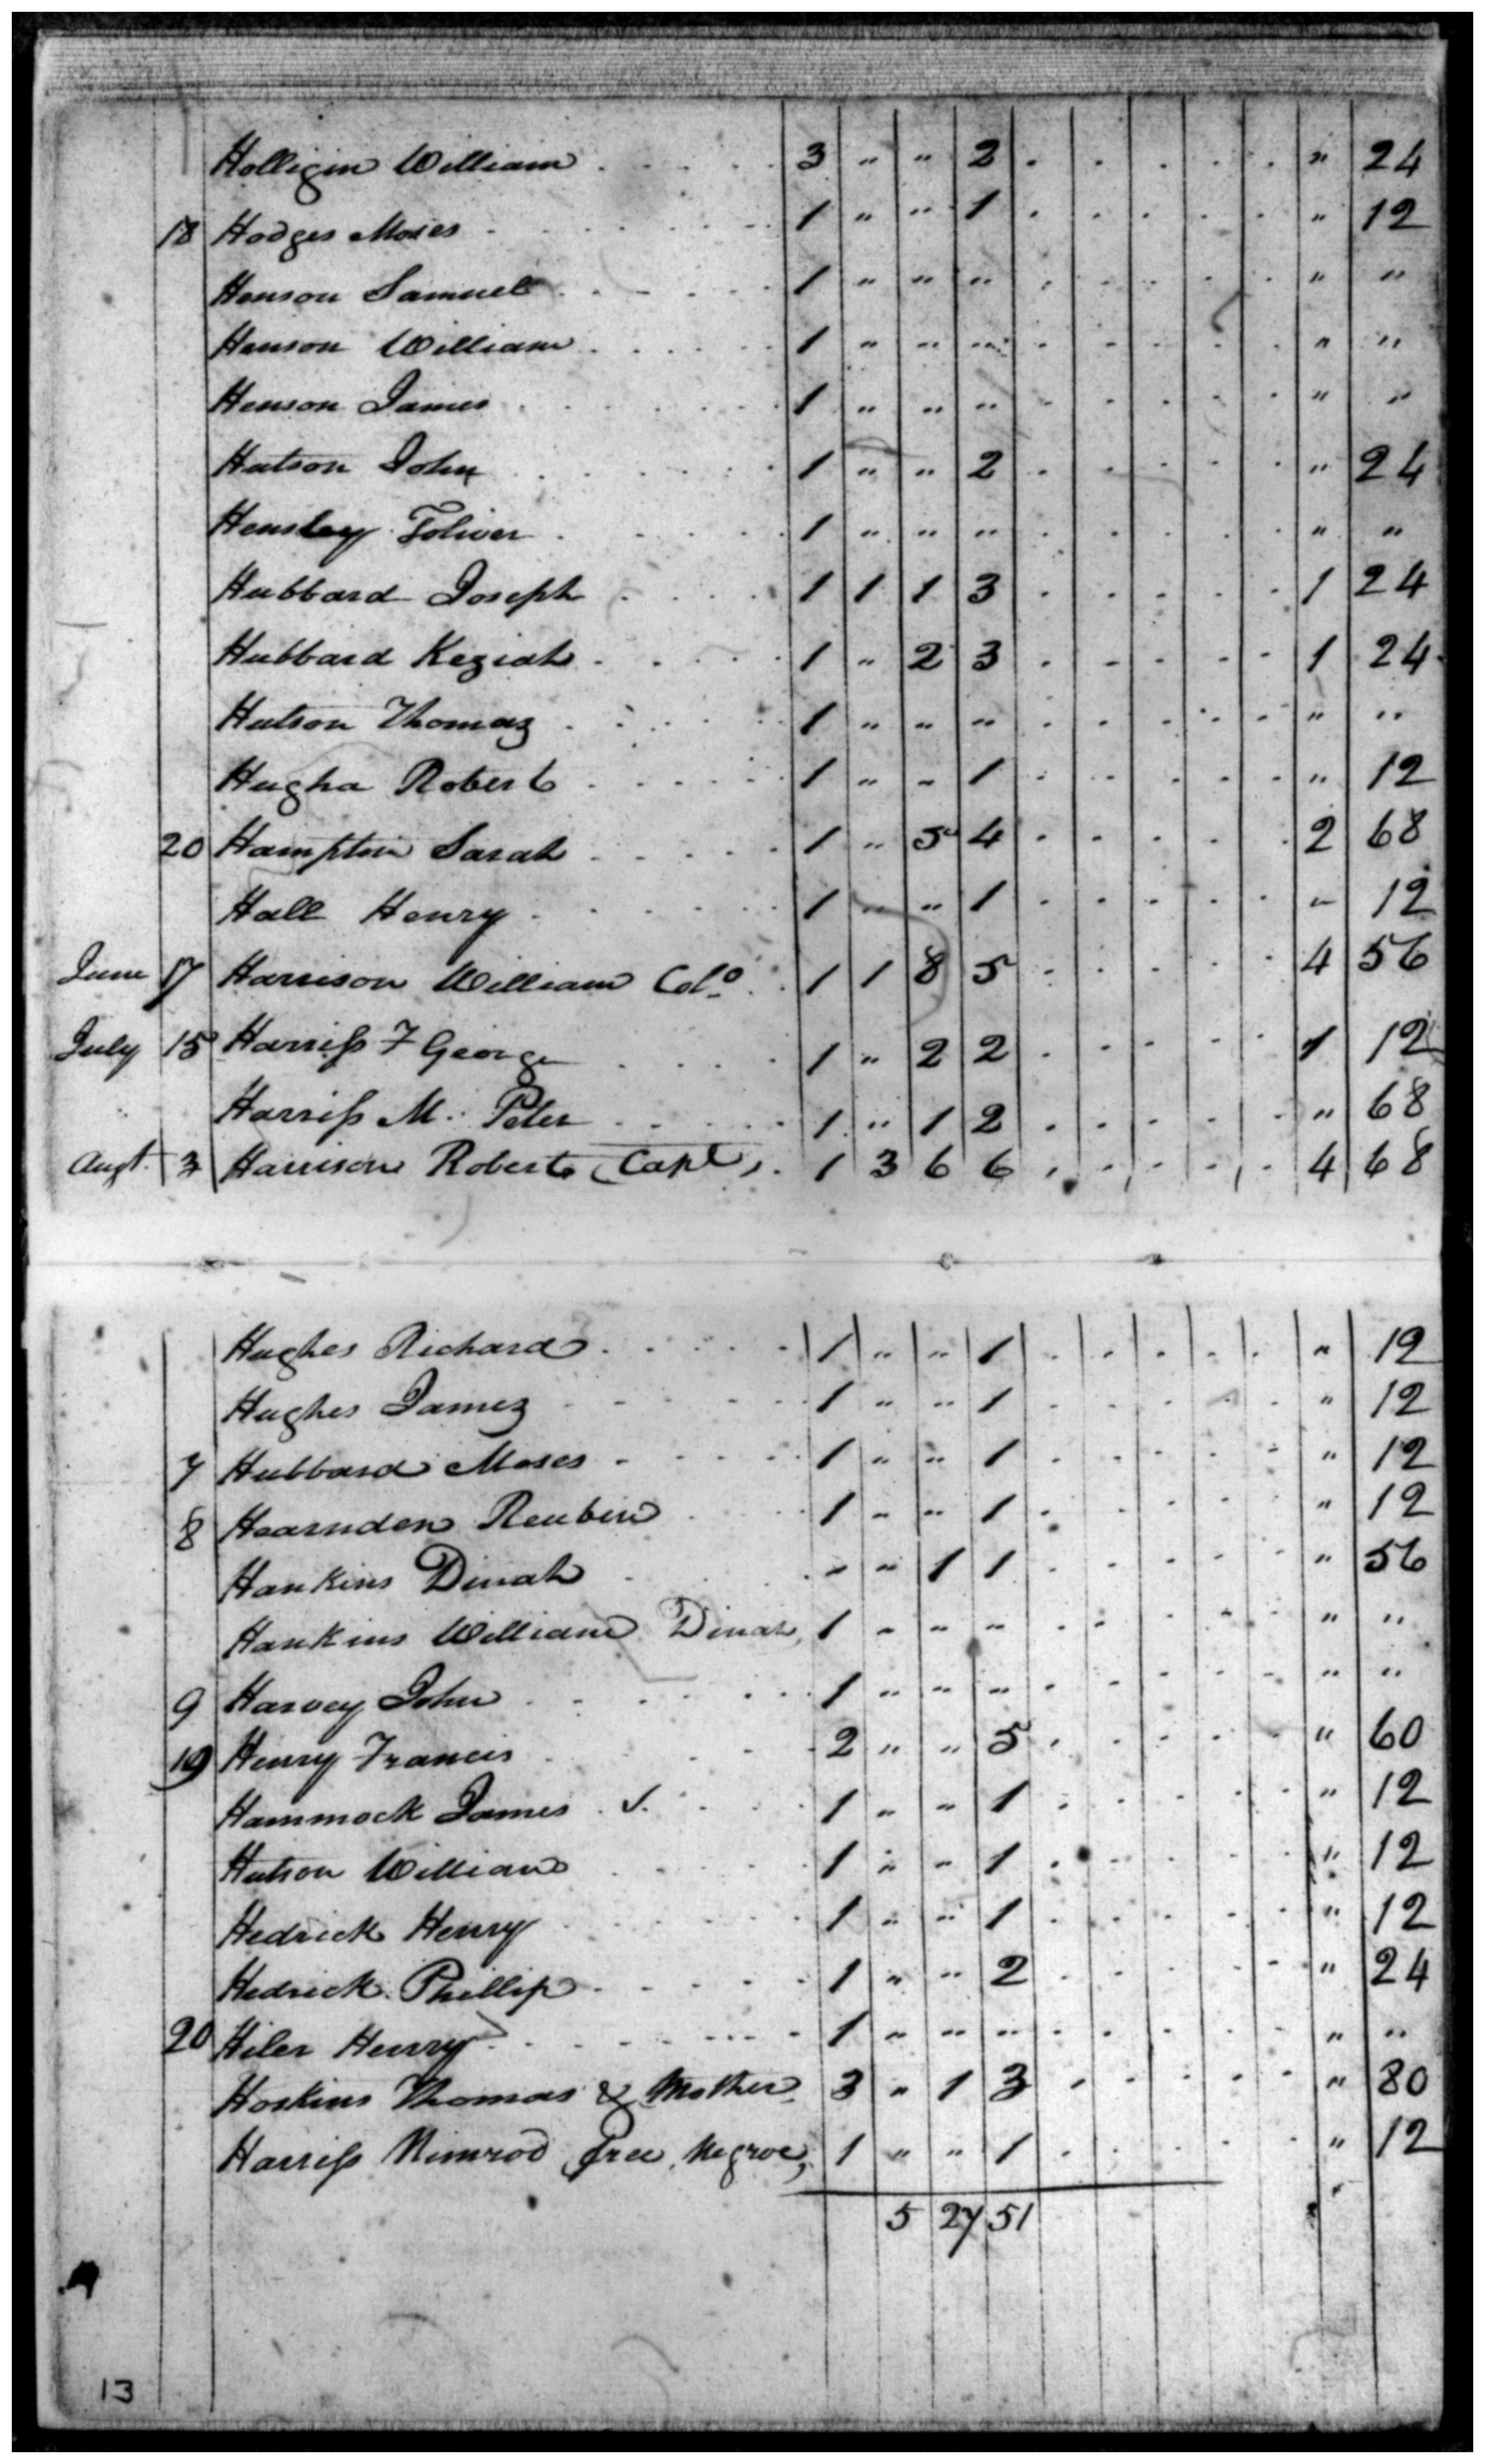 Holligin William . . . . . 3 " " 2 . . . . . " 24
18 Hodges Moses . . . . . 1 " " 1 . . . . . " 12
Henson Samuel . . . . . 1 " " " . . . . . " "
Henson William . . . . . 1 " " " . . . . . " "
Henson James . . . . . 1 " " " . . . . . " "
Hutson John . . . . . 1 " " 2 . . . . . " 24
Hensley Toliver . . . . . 1 " " " . . . . . " "
Hubbard Joseph . . . . 1 1 1 3 . . . . . 1 24
Hubbard Keziah . . . . 1 " 2 3 . . . . . 1 24
Hutson Thomas . . . . . 1 " " " . . . . . " "
Hugha Robert . . . . . 1 " " 1 . . . . . " 12
20 Hampton Sarah . . . . . 1 " 5 4 . . . . . 2 68
Hall Henry . . . . . 1 " " 1 . . . . . " 12
June 17 Harrison William Colo. . 1 1 8 5 . . . . . 4 56
July 15 Harriss F George . . . . 1 " 2 2 . . . . . 1 12
Harriss M. Peter . . . . . 1 " 1 2 . . . . . " 68
Augt. 3 Harrison Robert (Capt). . 1 3 6 6 . . . . . 4 68
Hughes Richard . . . . . 1 " " 1 . . . . . " 12
Hughes James . . . . . 1 " " 1 . . . . . " 12
7 Hubbard Moses . . . . 1 " " 1 . . . . . " 12
8 Hearnden Reuben . . . 1 " " 1 . . . . . " 12
Hankins Dinah . . . " " 1 1 . . . . . " 56
Hankins William Dinah, 1 " " " . . . . . " "
9 Harvey John . . . . . 1 " " " . . . . . " "
19 Henry Francis . . . . 2 " " 5 . . . . . " 60
Hammock James . J. . . . 1 " " 1 . . . . . " 12
Hutson William . . . . 1 " " 1 . . . . . " 12
Hedrick Henry . . . . . 1 " " 1 . . . . . " 12
Hedrick Phillip . . . . . 1 " " 2 . . . . . " 24
20 Hiler Henry . . . . . 1 " " " . . . . . " "
Hoskins Thomas & Mother 3 " 1 3 . . . . . " 80
Harriss Nimrod (free Negroe) 1 " " 1 . . . . . " 12
5 27 51
13